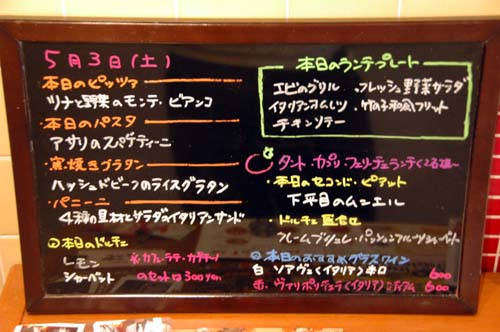 5月3日(土)
本日のピッツァ
ツナと野菜のモンテ・ビアンコ
本日のパスタ
アサリのスパゲティーニ
窯焼きグラタン
ハッシュドビーフのライスグラタン
パニーニ
4種の具材とサラダのイタリアンサンド
本日のドルチェ
レモン
シャーベット
カフェ・ラテ・カプチーノ
のセットは300yen
本日のランチプレート
エビのグリル ・フレッシュ野菜サラダ
イタリアンオムレツ ・竹の子和風フリット
チキンソテー
タント カプリ・フェリーチェランチ(2名様~
・本日のセコンド・ピアット
下平目のムニエル
・ドルチェ盛合せ
クレームブリュレ・パッションフルーツシャーベット
本日のおすすめグラスワイン
白 ソアヴェ(イタリア)辛口 600
赤 ヴァリポリチェラ(イタリア)ミディアム 600